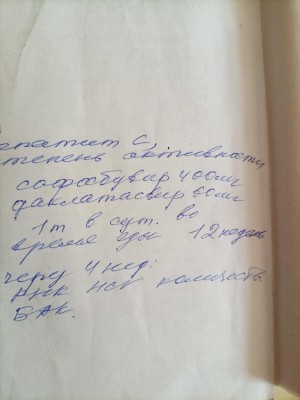 епатит С,
тепень активности
софосбувир 400мг
даклатасвир 60мг
1т в сут. во
время еды 12 недель
через 4 нед:
РНК HCV количеств.
БАК.